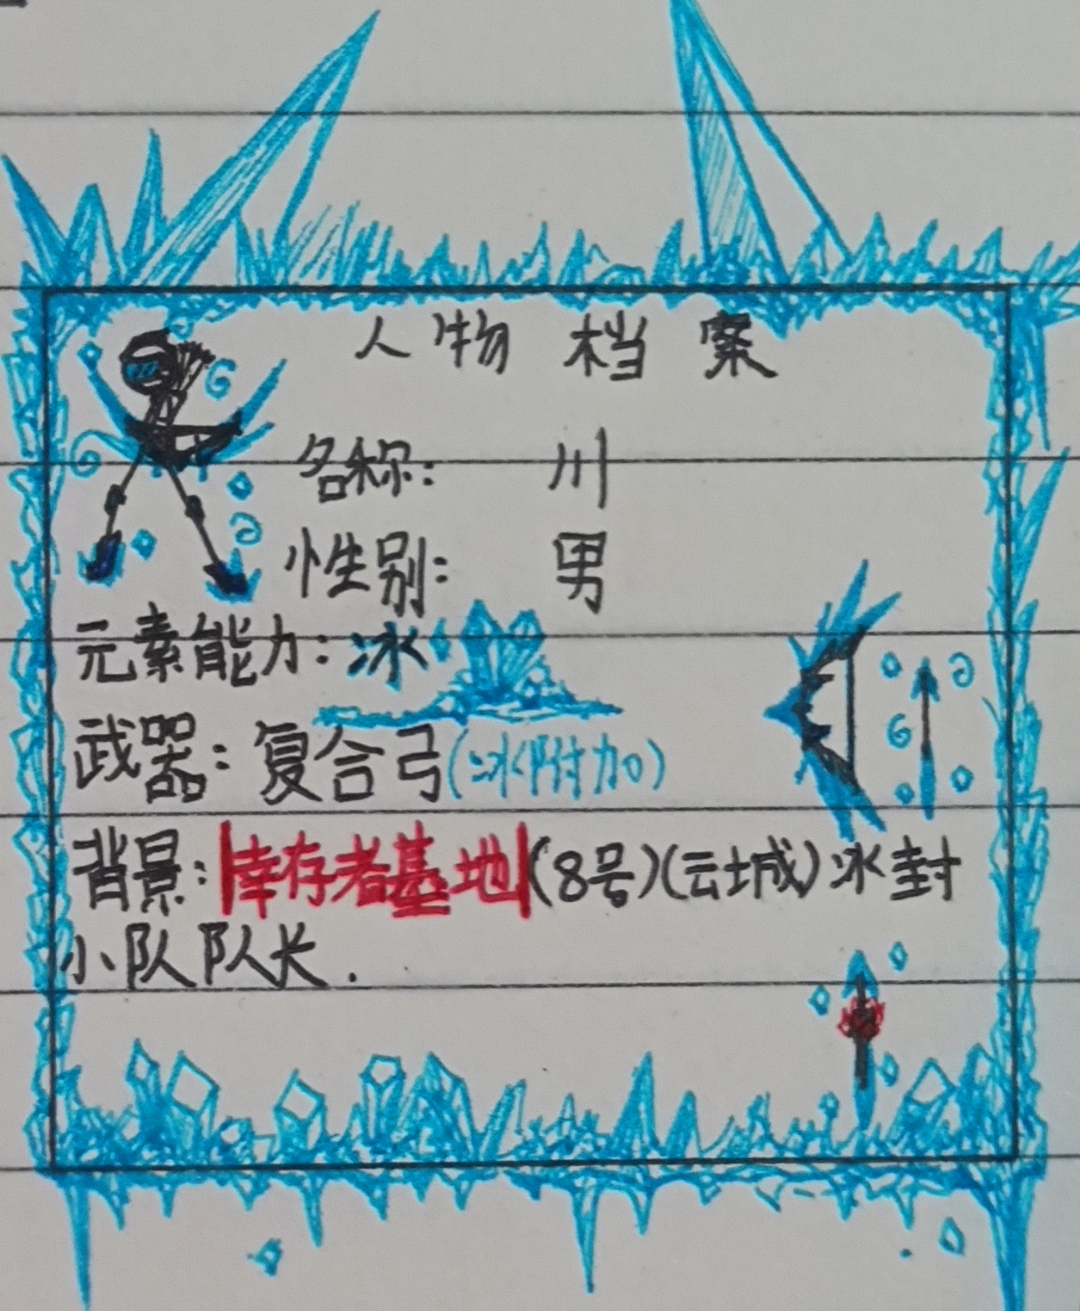 人物档案
名称: 川
性别: 男
元素能力: 冰
武器: 复合弓(冰附加)
背景: |幸存者基地|(8号)(云城)冰封
小队队长.